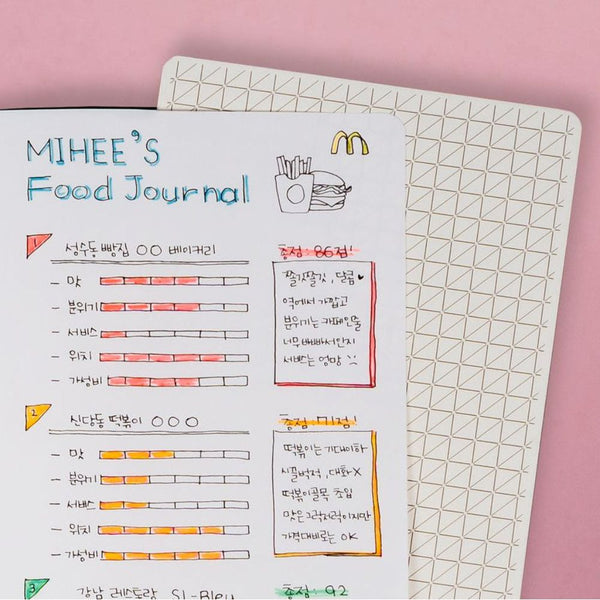 MIHEE'S
Food Journal
1 성수동 빵집 ○○ 베이커리
- 맛
- 분위기
- 서비스
- 위치
- 가성비
총점 : 86점!
쫄깃쫄깃, 달콤♥
역에서 가깝고
분위기는 카페인줄
너무 바빠서인지
서비스는 엉망
2 신당동 떡볶이 ○○○
- 맛
- 분위기
- 서비스
- 위치
- 가성비
총점 : 71점!
떡볶이는 기대이하
시끌벅적, 대화X
떡볶이골목 초입
맛은 그럭저럭이지만
가격대비로는 OK
3 강남 레스토랑 SI-Bleu
총점 : 92